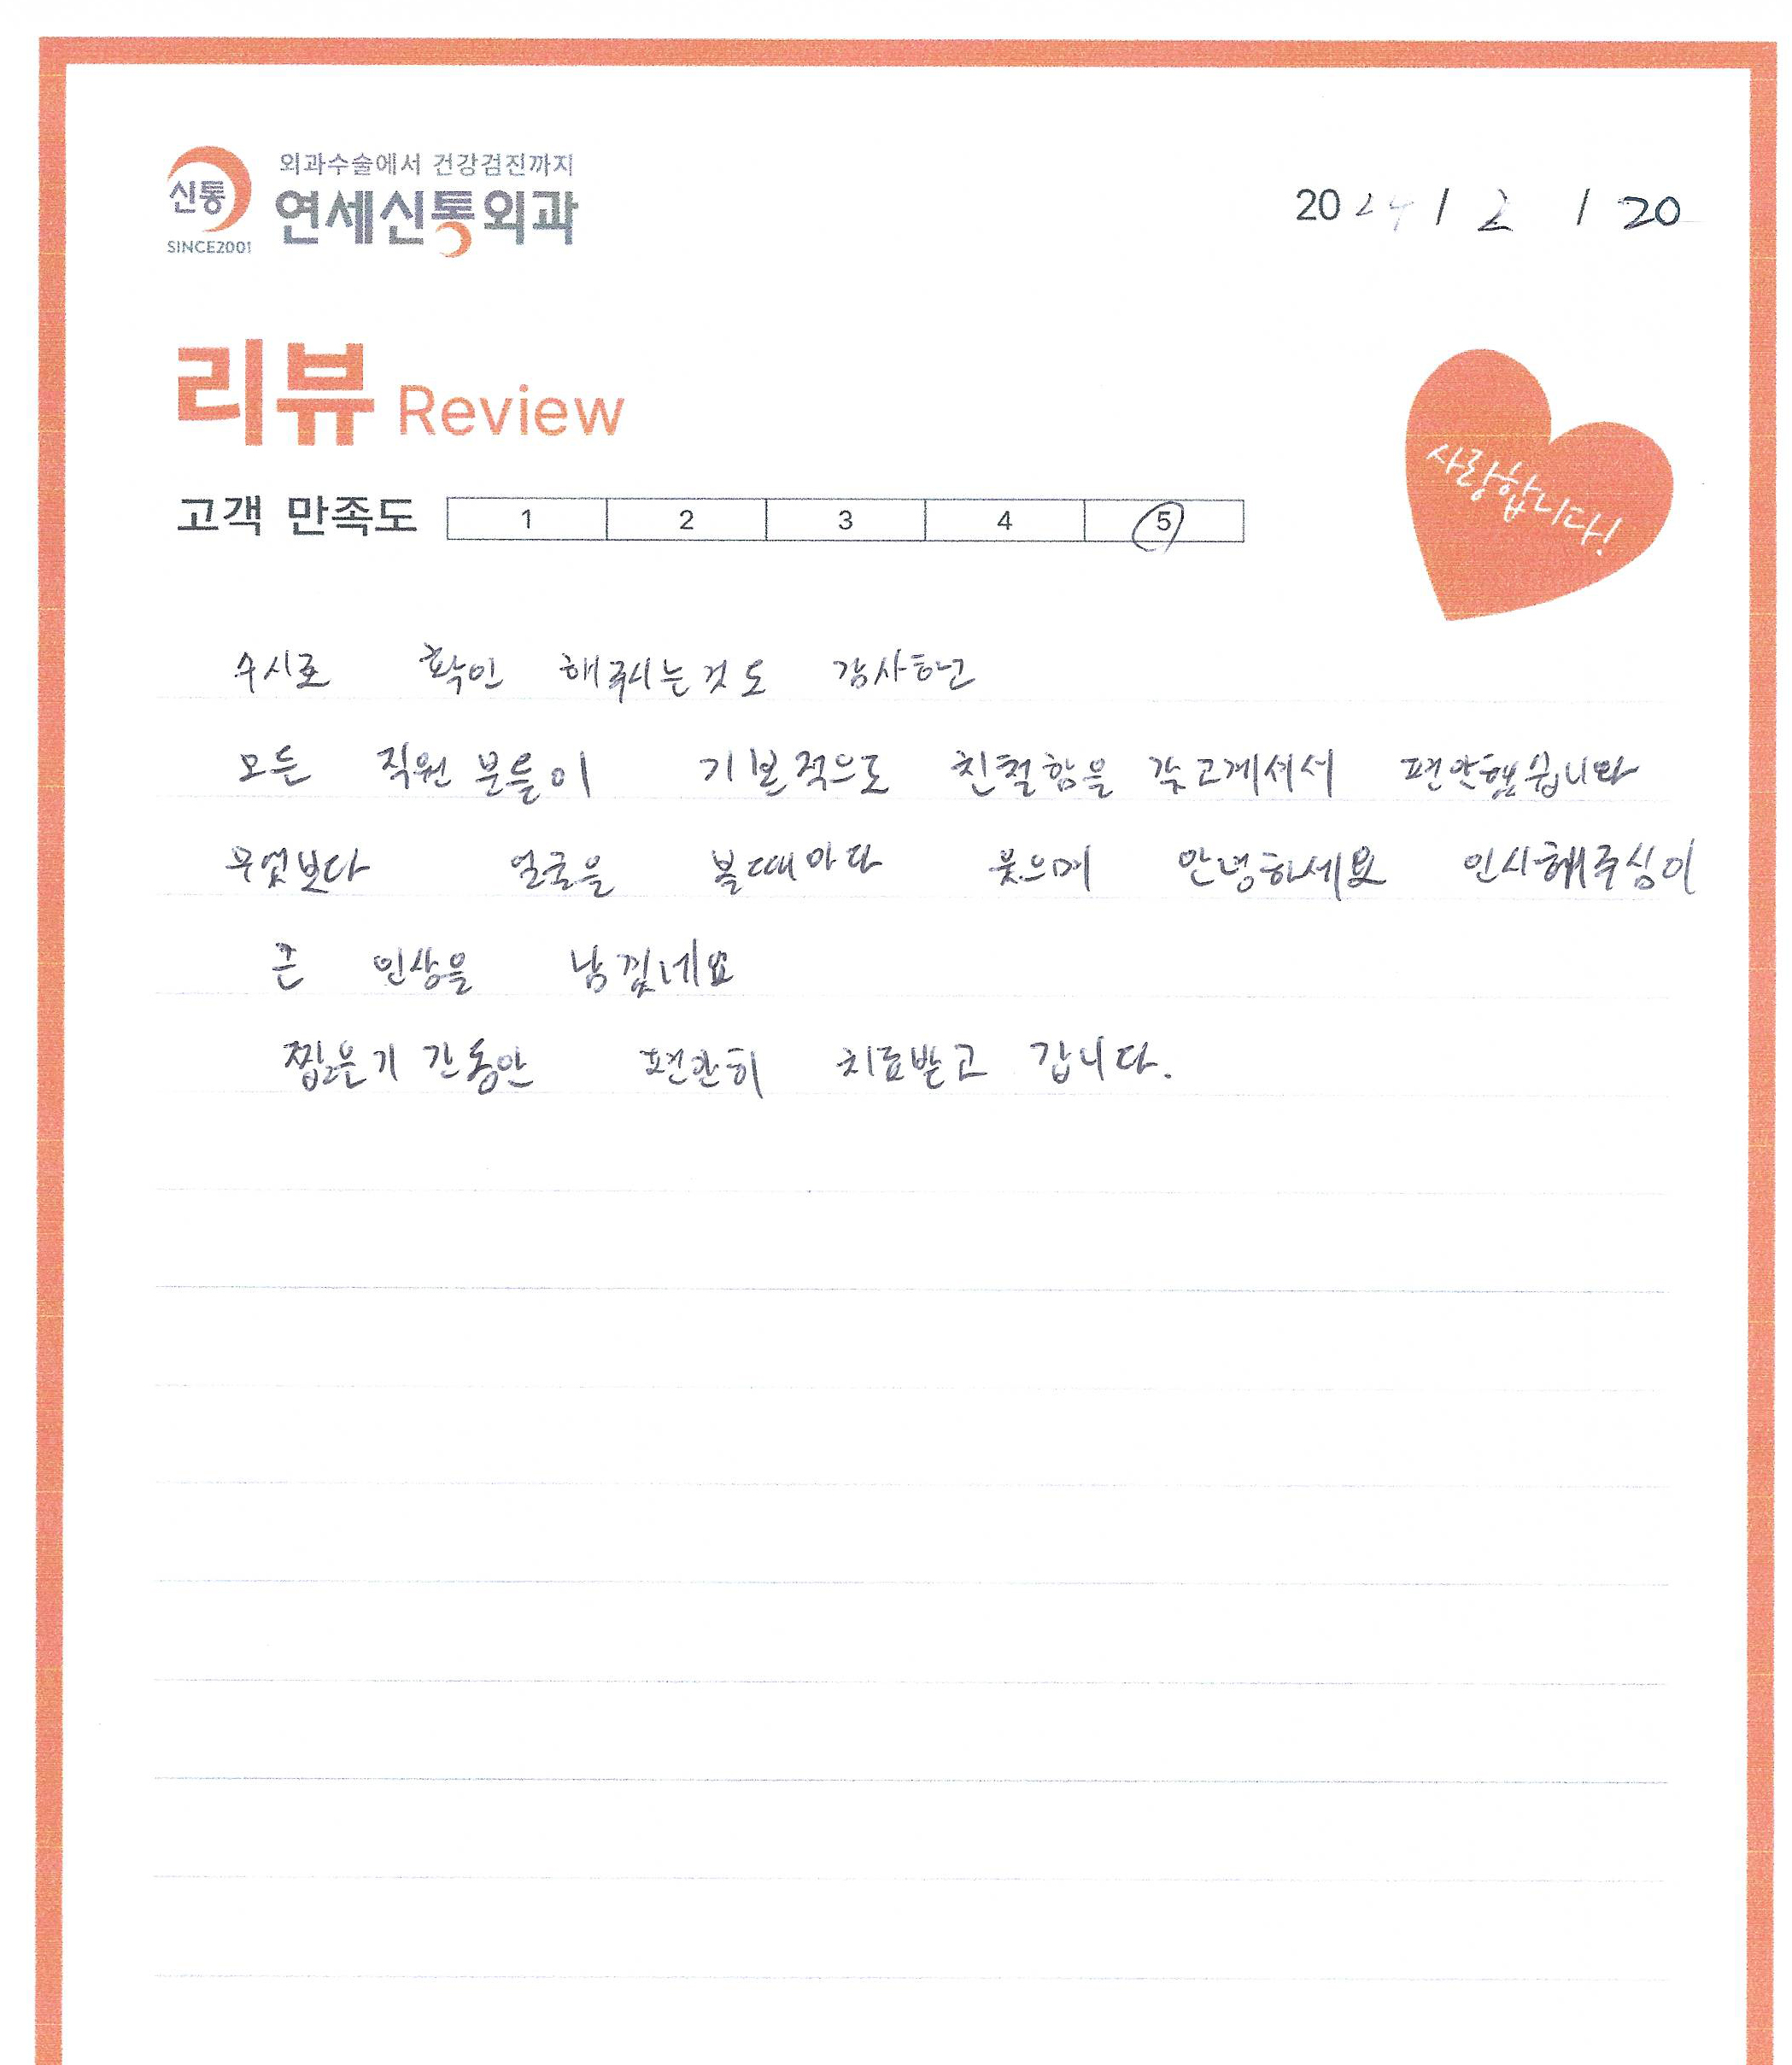 신통
SINCE2001
외과수술에서 건강검진까지
연세신통외과
2024 / 2 / 20
리뷰 Review
사랑합니다!
고객 만족도 1 2 3 4 5
수시로 확인 해주시는것도 감사하고
모든 직원분들이 기본적으로 친절함을 갖고계셔서 편안했습니다
무엇보다 얼굴을 볼때마다 웃으며 안녕하세요 인사해주심이
큰 인상을 남겼네요
짧은기간동안 편안히 치료받고 갑니다.